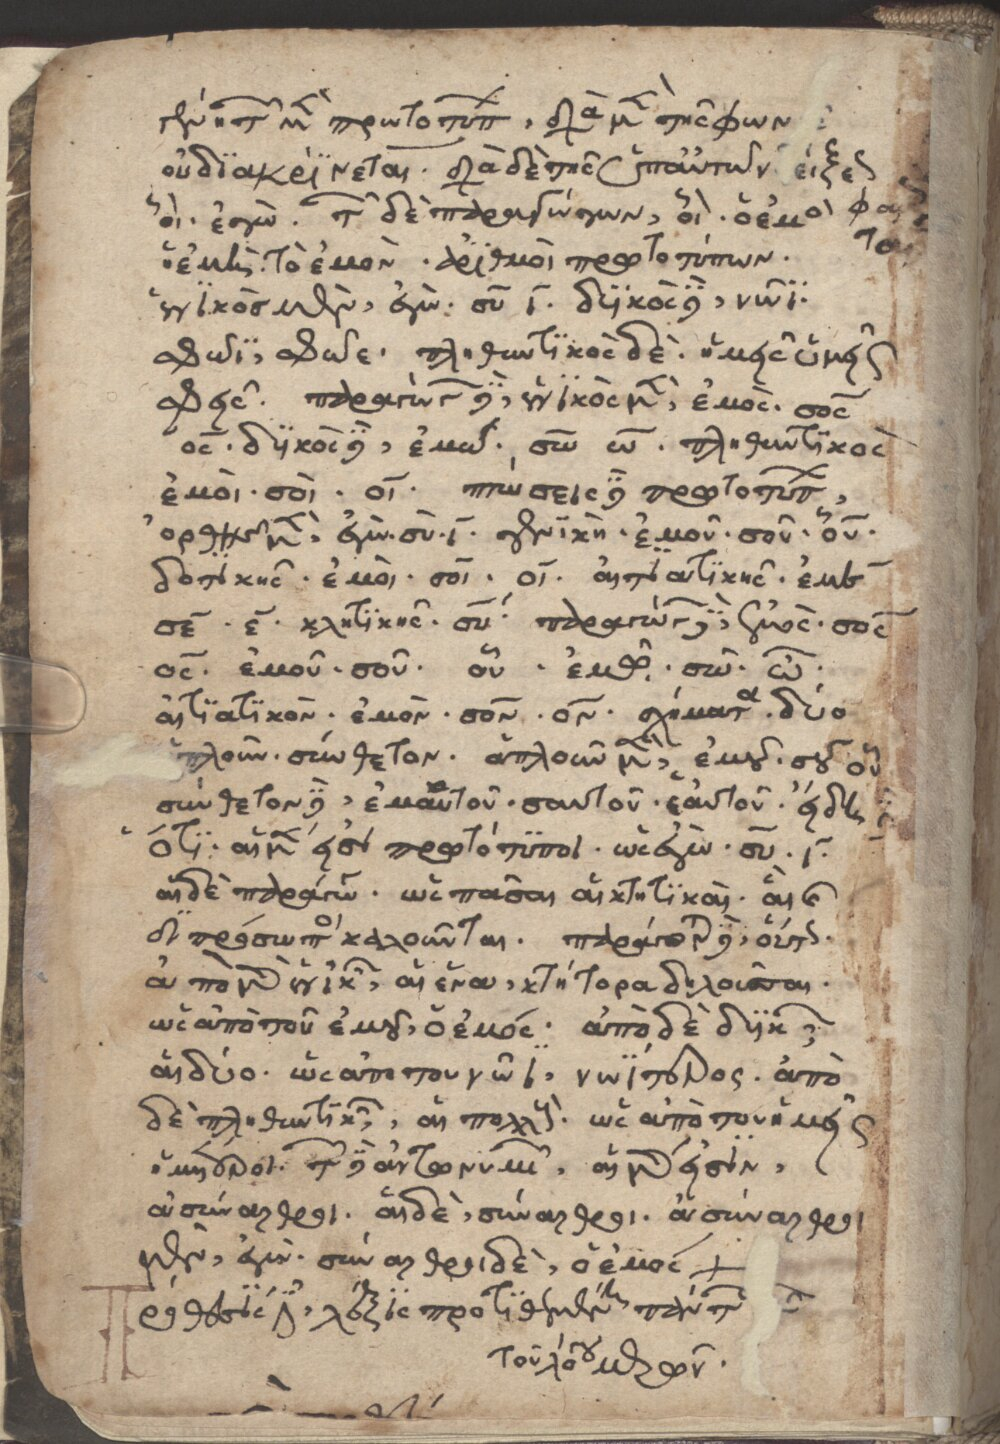 γένη τῶν μὲν πρωτοτύπων, διὰ μὲν τῆς φωνῆς
οὐ διακρίνεται. διὰ δὲ τῆς ὑπ' αὐτῶν δείξεως
οἷ. ἐγὼ. τῶν δὲ παραγώγων, οἷ. ὁ ἐμὸς
ἡ ἐμὴ. τὸ ἐμὸν. ἀριθμοὶ πρωτοτύπων.
ἑνικὸς μὲν, ἐγὼ. σὺ ἵ. δυϊκὸς δὲ, νῶϊ.
σφῶϊ, σφῶε. πληθυντικὸς δὲ. ἡμεῖς ὑμεῖς
σφεῖς. παραγώγων δὲ, ἑνικὸς μὲν, ἐμὸς. σὸς
ὃς. δυϊκὸς δὲ, ἐμὼ. σὼ ὣ. πληθυντικὸς
ἐμοὶ. σοὶ. οἵ. πτώσεις δὲ πρωτοτύπων,
ὀρθῆς μὲν, ἐγὼ. σὺ. ἵ. γενικὴ. ἐμοῦ. σοῦ. οὗ.
δοτικῆς. ἐμοὶ. σοῖ. οἷ. αἰτιατικῆς. ἐμὲ
σὲ. ἓ. κλητικῆς. σύ. παραγώγων δὲ, ἐμὸς. σὸς
ὃς. ἐμοῦ. σοῦ. οὗ. ἐμῶ. σῶ. ὧ.
αἰτιατικὸν. ἐμὸν. σὸν. ὃν. σχήματα. δύο
ἁπλοῦν. σύνθετον. ἁπλοῦν μὲν, ἐμοῦ. σοῦ οὗ
σύνθετον δὲ, ἐμαυτοῦ. σαυτοῦ. ἑαυτοῦ. εἴδη
ὅτι. αἱ μὲν εἰσὶ πρωτότυποι. ὡς ἐγὼ. σὺ. ἵ.
αἱ δὲ παράγωγοι. ὡς πᾶσαι αἱ κτητικαὶ. αἳ καὶ
διπρόσωποι καλοῦνται. παράγονται δὲ, οὕτως.
ἀπὸ μὲν ἑνικῶν, αἱ ἕνα, κτήτορα δηλοῦσαι.
ὡς ἀπὸ τοῦ ἐμοῦ, ὁ ἐμός. ἀπὸ δὲ δυϊκῶν,
αἱ δύο. ὡς ἀπὸ τοῦ νῶϊ, νωΐτερος. ἀπὸ
δὲ πληθυντικῶν, αἱ πολλοὺς. ὡς ἀπὸ τοῦ ἡμεῖς
ἡμέτεροι. τῶν δὲ ἀντωνυμιῶν, αἱ μέν εἰσιν,
ἀσύναρθροι. αἱ δὲ, σύναρθροι. ἀσύναρθροι
μὲν, ἐγὼ. σύναρθροι δὲ, ὁ ἐμός +
Πρόθεσίς ἐστι, λέξις προτιθεμένη πάντων
τοῦ λόγου μερῶν.